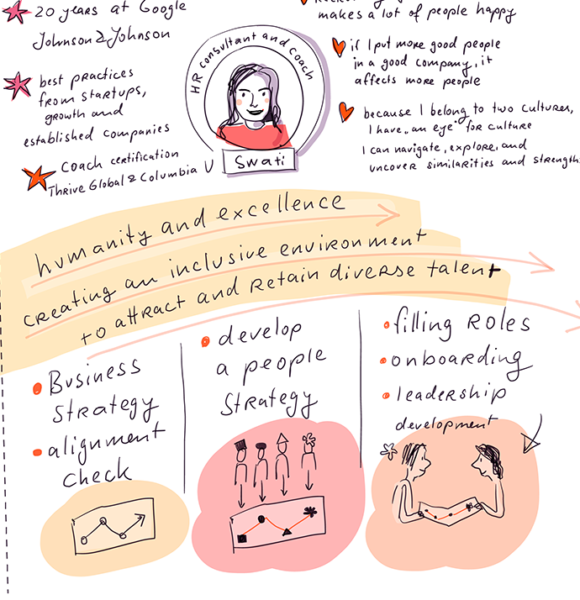 20 years at Google
Johnson & Johnson
best practices
from startups,
growth and
established companies
Coach certification
Thrive Global & Columbia U
HR consultant and coach
Swati
makes a lot of people happy
if I put more good people
in a good company, it
affects more people
because I belong to two cultures,
I have "an eye" for culture
I can navigate, explore, and
uncover similarities and strength
humanity and excellence
creating an inclusive environment
to attract and retain diverse talent
Business
strategy
alignment
check
develop
a people
strategy
filling roles
onboarding
leadership
development